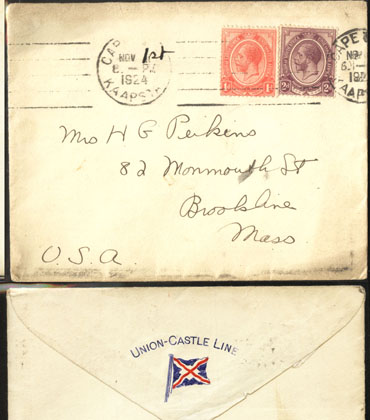 CAP
NOV 1st
6 - PM
1924
KAAPST
1d 1d
2d 2d
CAPE
NOV
6 - PM
192
KAAP
Mrs H G Perkins
82 Monmouth St
Brookline
Mass.
U.S.A.
UNION-CASTLE LINE